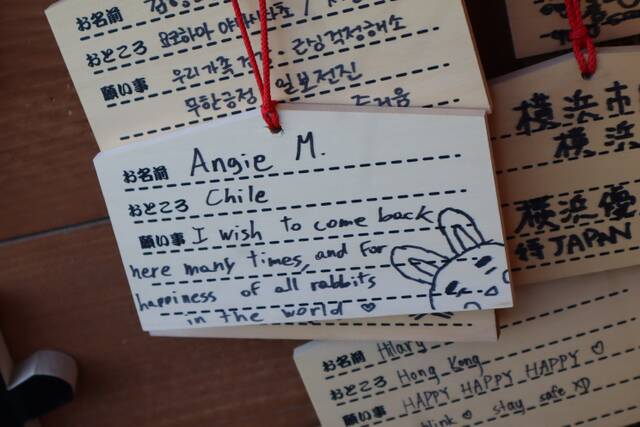 お名前
おところ 요코하마
願い事 우리가족 걱정해소
무한긍정 일보전진
お名前 Angie M.
おところ Chile
願い事 I wish to come back
here many times, and for
happiness of all rabbits
in the world ♡
横浜市
横浜
横浜優
特JAPAN
お名前 Hilary
おところ Hong Kong
願い事 HAPPY HAPPY HAPPY ♡
stay safe XD